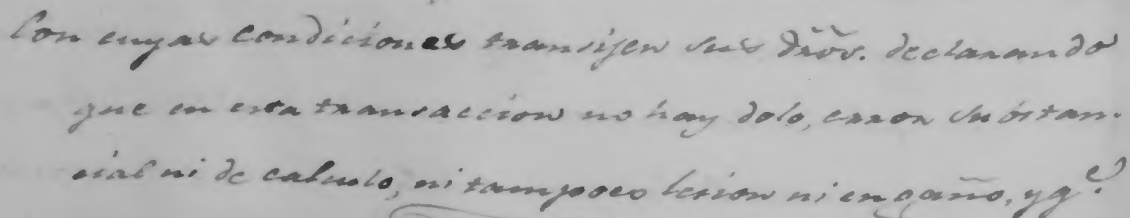 Con cuyas condiciones transijen sus dr̃õs. declarando
que en esta transaccion no hay dolo, error substan-
cial ni de calculo, ni tampoco lesion ni engaño, y q.e